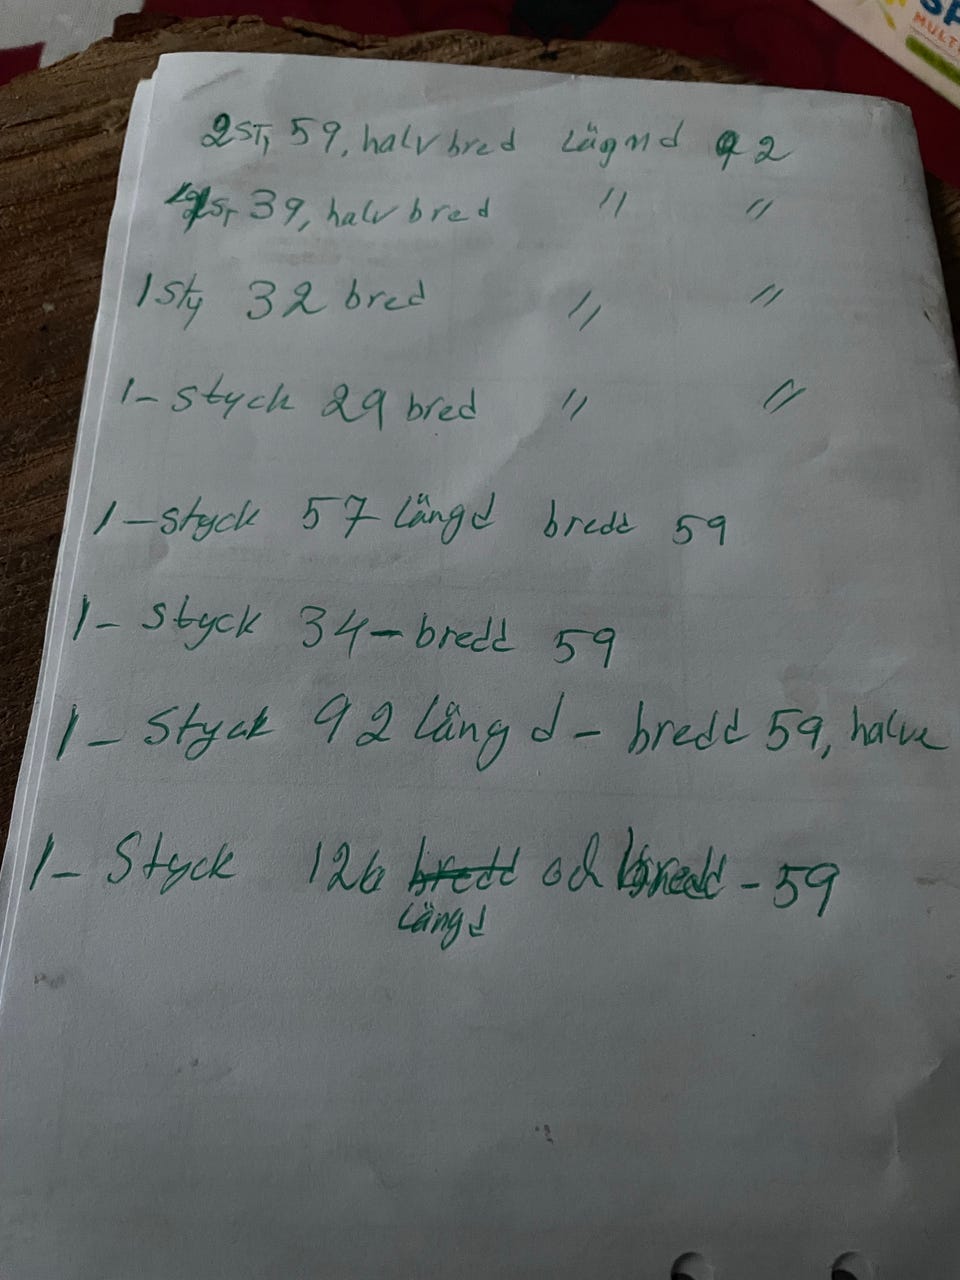 SP
MULT
2 ST, 59, halv bred Lägnd 92
ST 39, halv bred " "
1 sty 32 bred " "
1- styck 29 bred " "
1 - styck 57 längd bredd 59
1- styck 34 - bredd 59
1- styck 92 längd - bredd 59, halva
1- Styck 126 bredd och bredd - 59
Längd